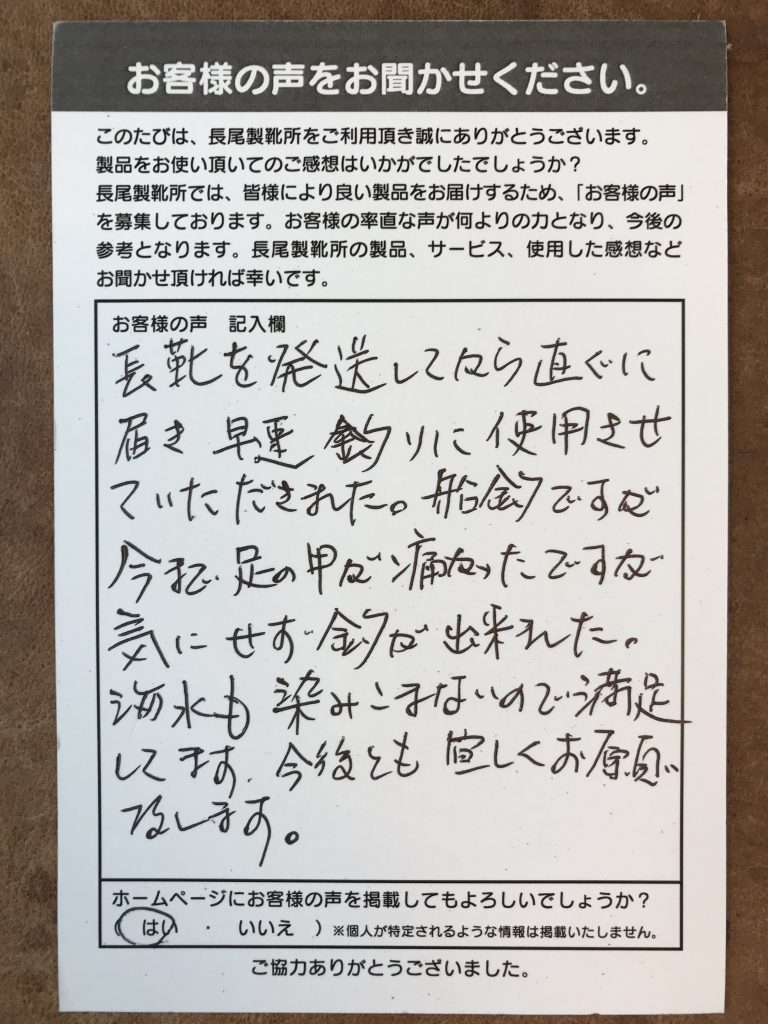 お客様の声をお聞かせください。
このたびは、長尾製靴所をご利用頂き誠にありがとうございます。
製品をお使い頂いてのご感想はいかがでしたでしょうか？
長尾製靴所では、皆様により良い製品をお届けするため、「お客様の声」
を募集しております。お客様の率直な声が何よりの力となり、今後の
参考となります。長尾製靴所の製品、サービス、使用した感想など
お聞かせ頂ければ幸いです。
お客様の声　記入欄
長靴を発送してから直ぐに
届き 早速 釣りに使用させ
ていただきました。船釣ですが
今まで足の甲が痛かったですが
気にせず釣が出来ました。
海水も染みこまないので満足
してます。今後とも宜しくお願い
致します。
ホームページにお客様の声を掲載してもよろしいでしょうか？
（ はい ・ いいえ ）※個人が特定されるような情報は掲載いたしません。
ご協力ありがとうございました。